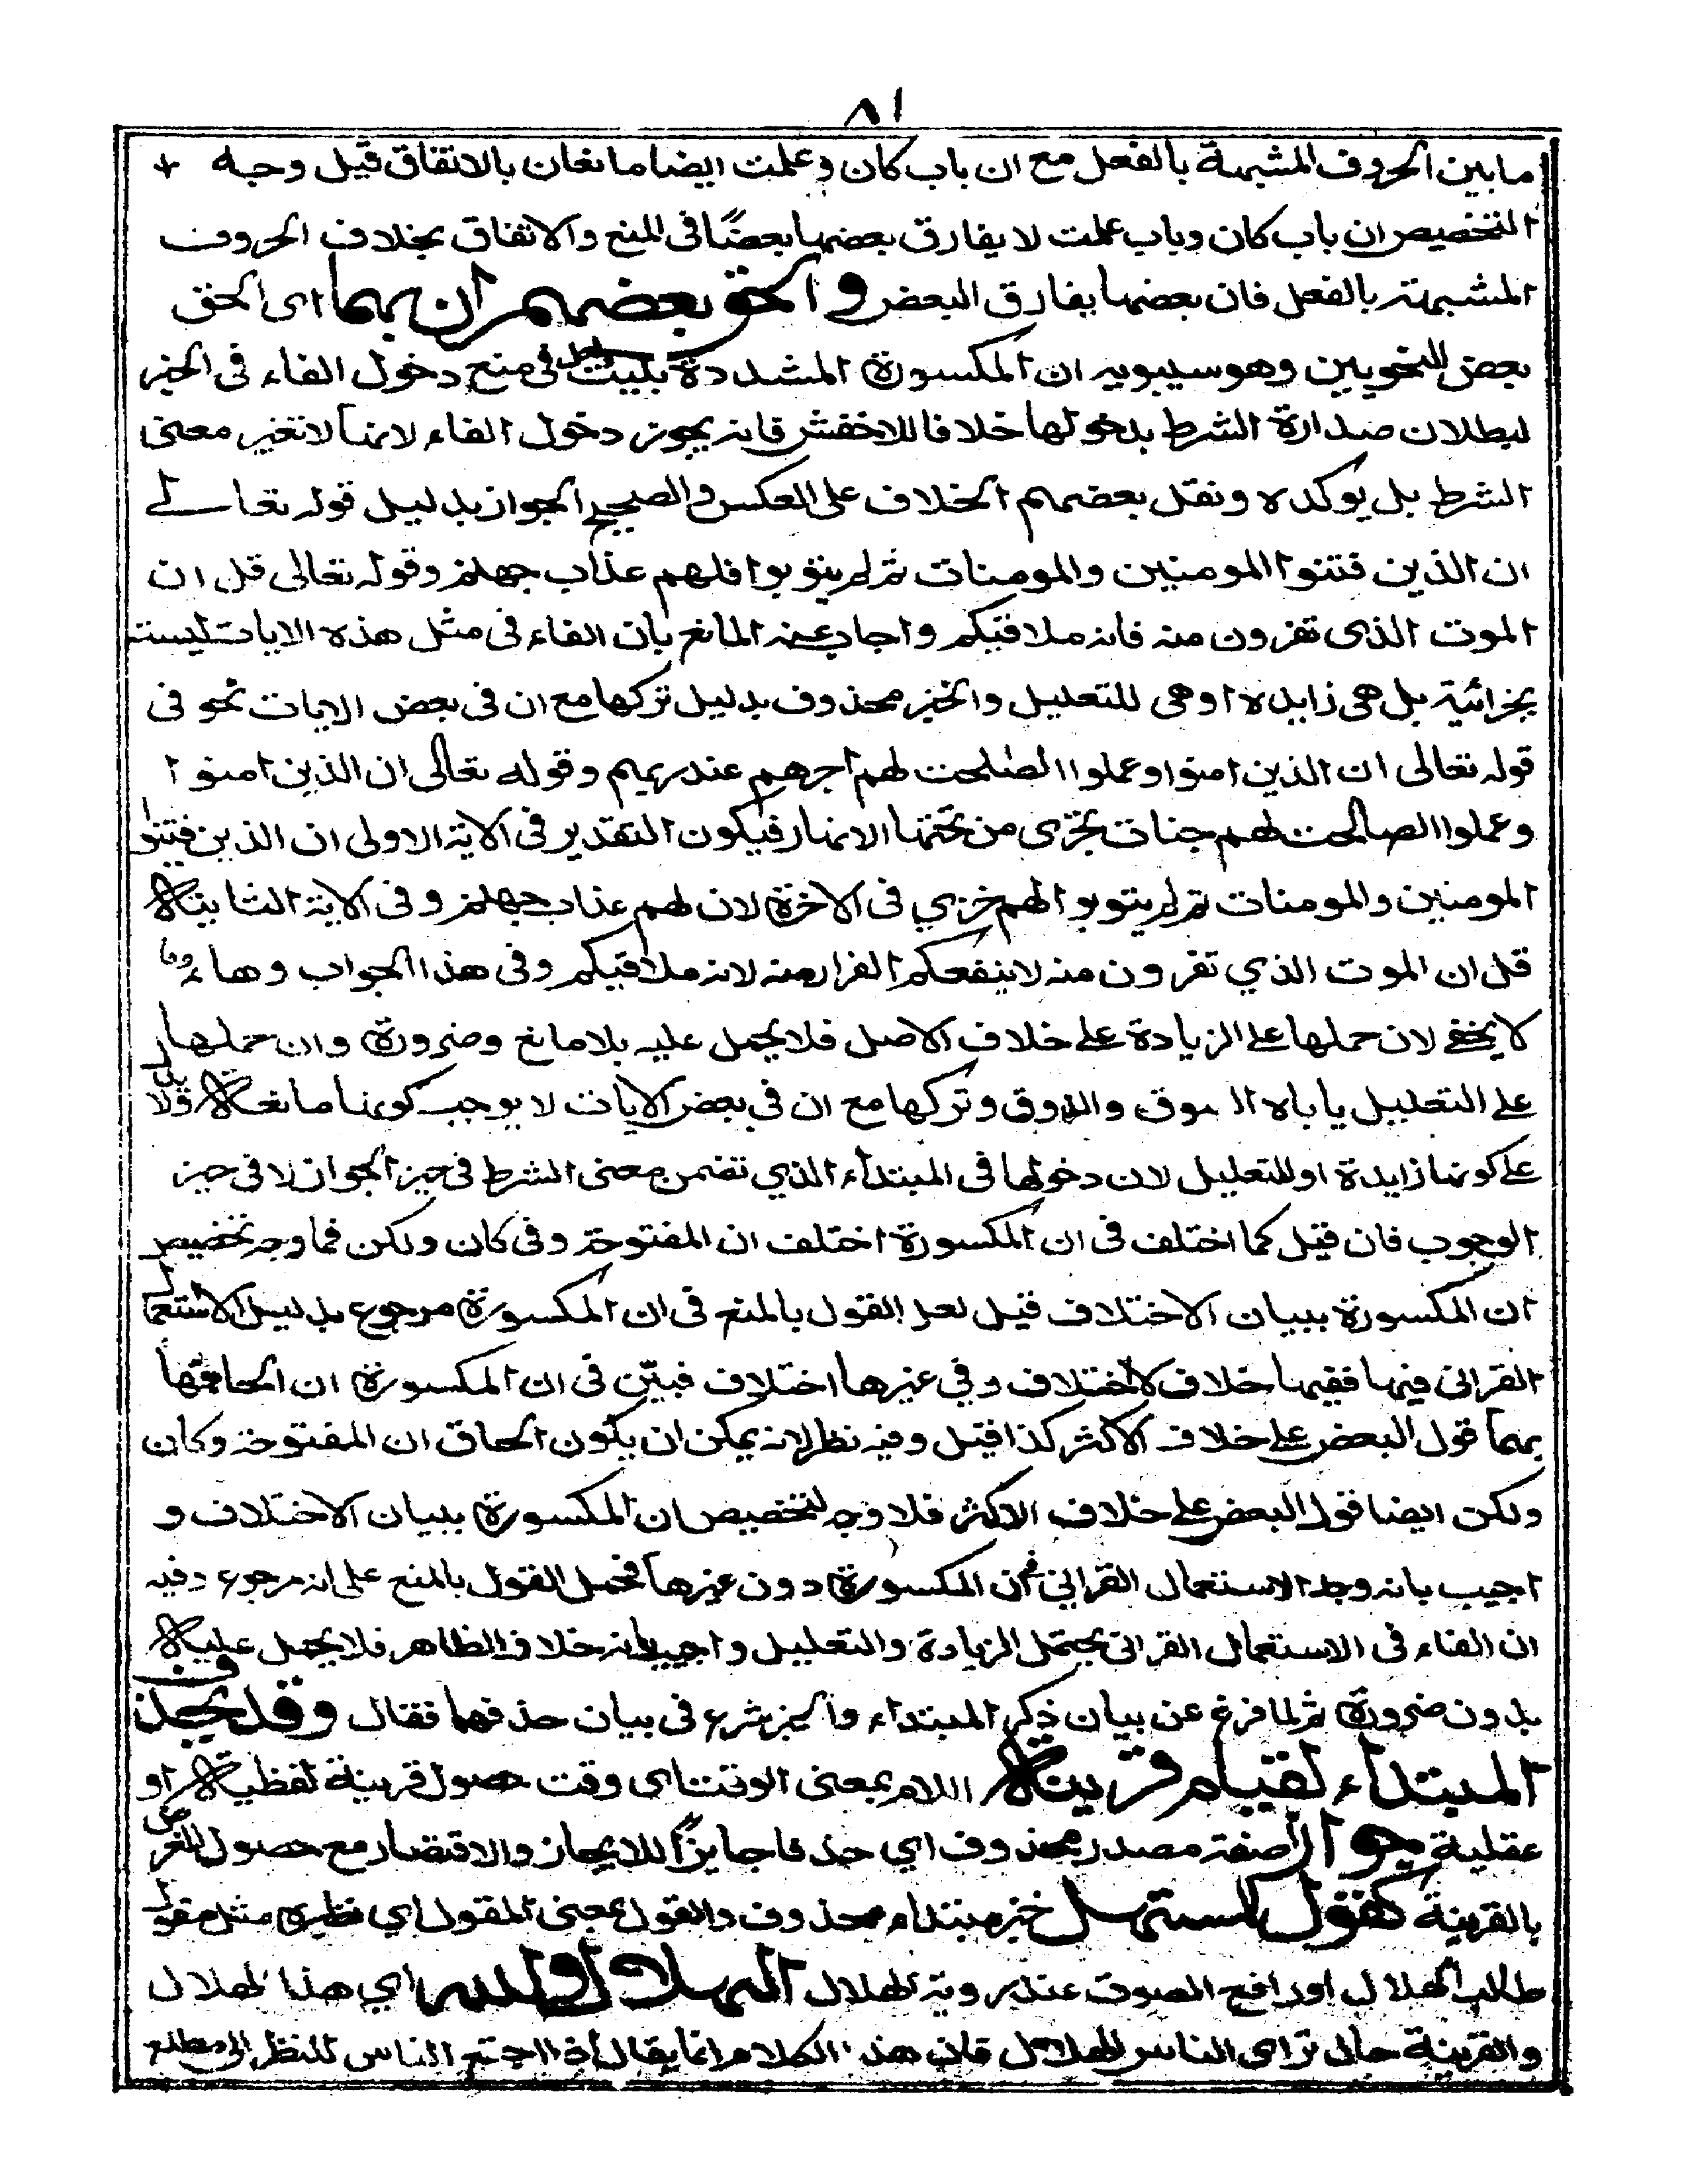 ٨١
ما بين الحروف المشبهة بالفعل مع ان باب كان وعلمت ايضا مانعان بالاتفاق قيل وجه
التخصيص ان باب كان وباب علمت لا يفارق بعضها بعضًا فى المنع والاتفاق بخلاف الحروف
المشبهة بالفعل فان بعضها يفارق البعض والحق بعضهم ان بهما اى الحق
بعض النحويين وهو سيبويه ان المكسورة المشددة بليت ولعل فى منع دخول الفاء فى الخبر
لبطلان صدارة الشرط بدخولها خلافا للاخفش فانه يجوز دخول الفاء لانها لا تغير معنى
الشرط بل يوكده ونقل بعضهم الخلاف على العكس والصحيح الجواز بدليل قوله تعالے
ان الذين فتنوا المومنين والمومنات ثم لم يتوبوا فلهم عذاب جهنم وقوله تعالى قل ان
الموت الذى تفرون منه فانه ملاقيكم واجاب عنه المانع بان الفاء فى مثل هذه الايات ليست
بجزائية بل هى زايدة او هى للتعليل والخبر محذوف بدليل تركها مع ان فى بعض الايات نحو فى
قوله تعالى ان الذين امنوا وعملوا الصلحت لهم اجرهم عند ربهم وقوله تعالى ان الذين امنوا
وعملوا الصالحت لهم جنات تجرى من تحتها الانهار فيكون التقدير فى الاية الاولى ان الذين فتنوا
المومنين والمومنات ثم لم يتوبوا لهم خزي فى الاخرة لان لهم عذاب جهنم وفى الاية الثانية
قل ان الموت الذي تفرون منه لا ينفعكم الفرار منه لانه ملاقيكم وفى هذا الجواب وهاء وما
لا يخفى لان حملها على الزيادة على خلاف الاصل فلا يحمل عليه بلا مانع وضرورة وان حملها
على التعليل ياباه السوق والذوق وتركها مع ان فى بعض الايات لا يوجب كونها مانعة ولا يدل
على كونها زايدة او للتعليل لان دخولها فى المبتداء الذي تضمن معنى الشرط فى حيز الجواز لا فى حيز
الوجوب فان قيل كما اختلف فى ان المكسورة اختلف ان المفتوحة وفى كان ولكن فما وجه تخصيص
ان المكسورة ببيان الاختلاف قيل لعل القول بالمنع فى ان المكسورة مرجوع بدليل الاستعمال
القرانى فيها ففيها خلاف لا اختلاف وفي غيرها اختلاف فبيّن فى ان المكسورة ان الحاقها
بهما قول البعض على خلاف الاكثر كذا قيل وفيه نظر لانه يمكن ان يكون الحاق ان المفتوحة وكان
ولكن ايضا قول البعض على خلاف الاكثر فلا وجه لتخصيص ان المكسورة ببيان الاختلاف و
اجيب بانه وجد الاستعمال القرانى فى ان المكسورة دون غيرها فحمل القول بالمنع على انه مرجوع وفيه
ان الفاء فى الاستعمال القرانى يحتمل الزيادة والتعليل واجيب بانه خلاف الظاهر فلا يحمل عليه
بدون ضرورة ثم لما فرغ عن بيان ذكر المبتداء والخبر شرع فى بيان حذفهما فقال وقد يحذف
المبتداء لقيام قرينة اللام بمعنى الوقت اى وقت حصول قرينة لفظية او
عقلية جوازا صفة مصدر محذوف اي حذفا جايزًا للايجاز والاقتصار مع حصول الغرض
بالقرينة كقول المستهل خبر مبتداء محذوف والقول بمعنى المقول اي نظيره مثل مقول
طالب الهلال او رافع الصوت عند روية الهلال الهلال والله اي هذا الهلال
والقرينة حال ترائى الناس الهلال فان هذا الكلام انما يقال اذا اجتمع الناس للنظر الى مطلع